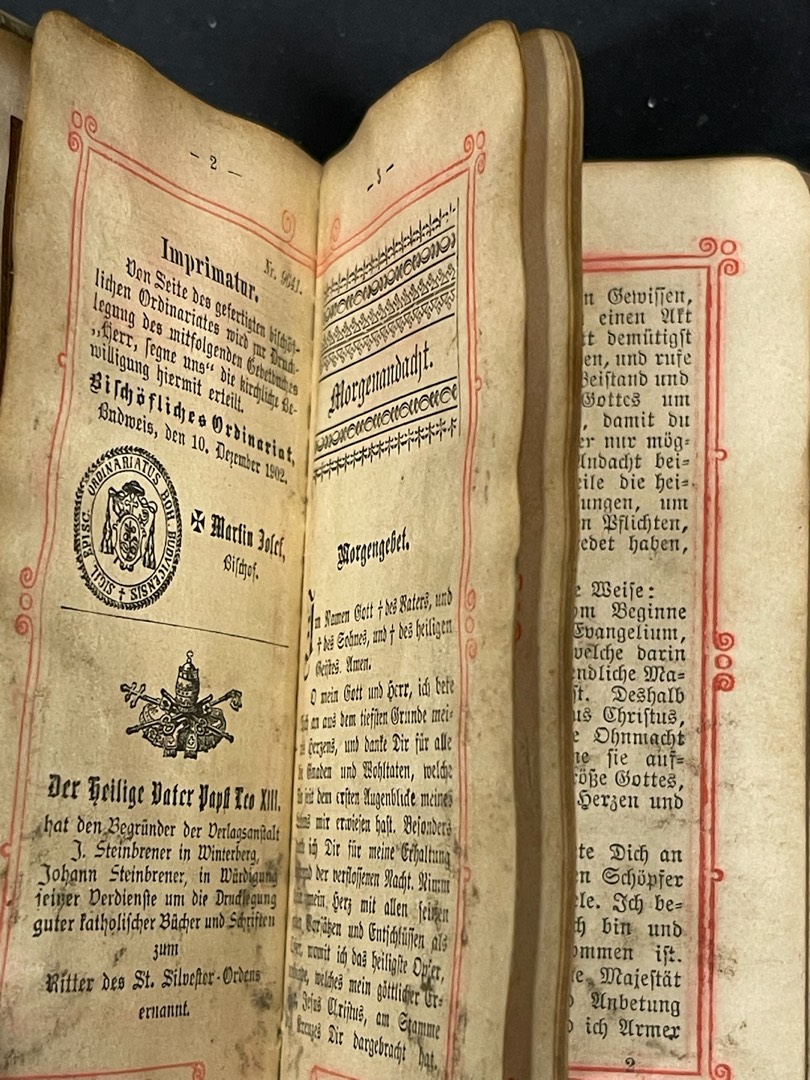 — 2 —
Imprimatur.
Nr. 9641.
Von Seite des gefertigten bischöf-
lichen Ordinariates wird zur Druck-
legung des mitfolgenden Gebetbuches
„Herr, segne uns“ die kirchliche Be-
willigung hiermit erteilt.
Bischöfliches Ordinariat,
Budweis, den 10. Dezember 1902.
SIGIL. EPISC. ORDINARIATUS BOH. BUDVICENSIS
✠ Martin Josef,
Bischof.
Der Heilige Vater Papst Leo XIII.
hat den Begründer der Verlagsanstalt
J. Steinbrener in Winterberg,
Johann Steinbrener, in Würdigung
seiner Verdienste um die Drucklegung
guter katholischer Bücher und Schriften
zum
Ritter des St. Silvester-Ordens
ernannt.
— 3 —
Morgenandacht.
Morgengebet.
Im Namen Gott † des Vaters, und
† des Sohnes, und † des heiligen
Geistes. Amen.
O mein Gott und Herr, ich bete
an aus dem tiefsten Grunde mei-
Herzens, und danke Dir für alle
Gnaden und Wohltaten, welche
seit dem ersten Augenblicke meines
mir erwiesen hast. Besonders
ich Dir für meine Erhaltung
der verflossenen Nacht. Nimm
mein Herz mit allen seinen
Vorsätzen und Entschlüssen als
womit ich das heiligste Opfer,
welches mein göttlicher Er-
Jesus Christus, am Stamme
Kreuzes Dir dargebracht hat.
n Gewissen,
einen Akt
tt demütigst
en, und rufe
Beistand und
Gottes um
, damit du
er nur mög-
Andacht bei-
eile die hei-
ungen, um
n Pflichten,
edet haben,
e Weise:
om Beginne
Evangelium,
welche darin
endliche Ma-
st. Deshalb
us Christus,
e Ohnmacht
ne sie auf-
röße Gottes,
Herzen und
te Dich an
en Schöpfer
le. Ich be-
ch bin und
ommen ist.
e Majestät
Anbetung
ich Armer
2